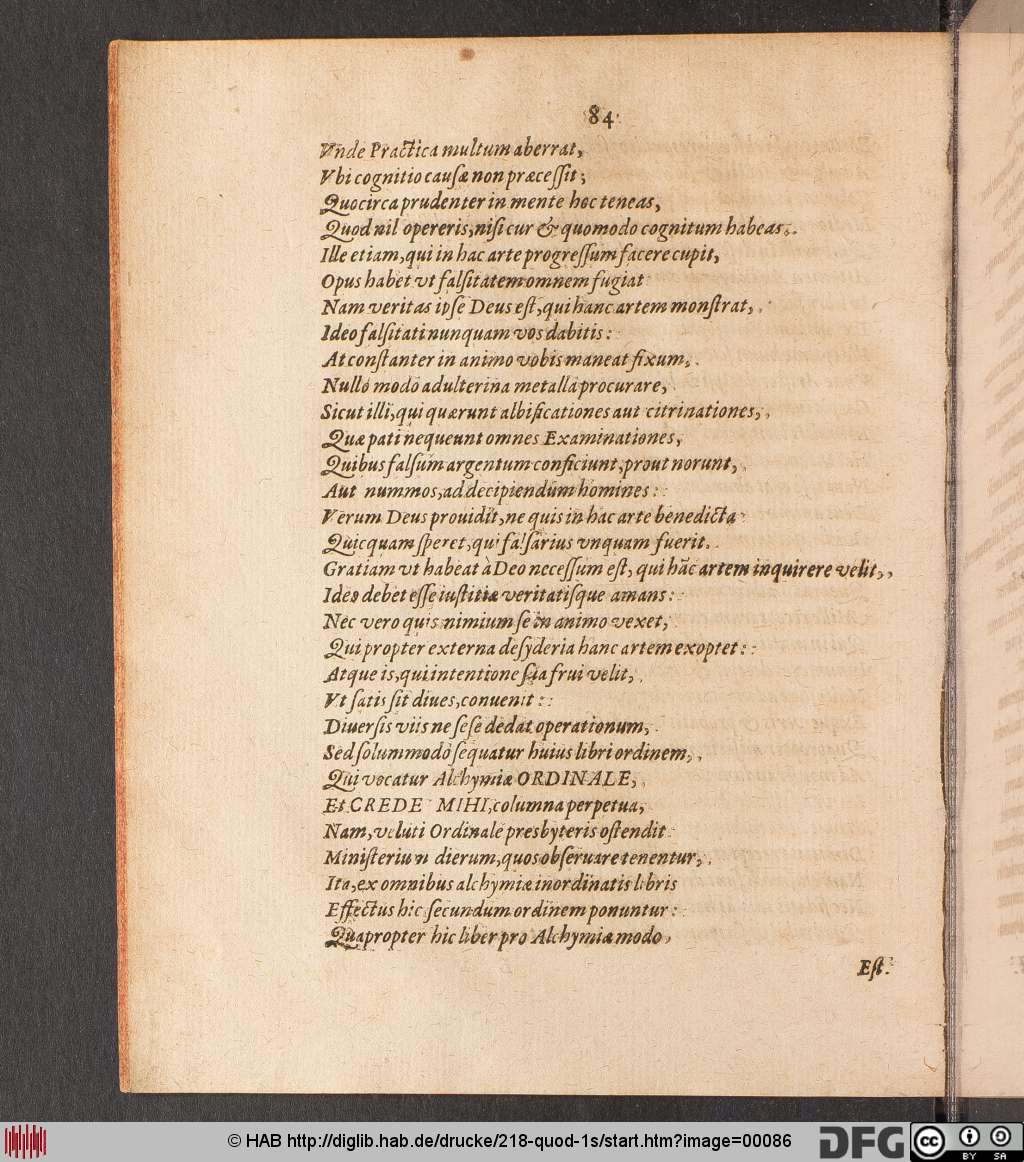 84
Vnde Practica multum aberrat,
Vbi cognitio causæ non præcessit;
Quocirca prudenter in mente hoc teneas,
Quod nil opereris, nisi cur & quomodo cognitum habeas.
Ille etiam, qui in hac arte progressum facere cupit,
Opus habet vt falsitatem omnem fugiat
Nam veritas ipse Deus est, qui hanc artem monstrat,
Ideo falsitati nunquam vos dabitis:
At constanter in animo vobis maneat fixum,
Nullo modo adulterina metalla procurare,
Sicut illi, qui quærunt albificationes aut citrinationes,
Quæ pati nequeunt omnes Examinationes,
Quibus falsum argentum conficiunt, prout norunt,
Aut nummos, ad decipiendum homines:
Verum Deus prouidit, ne quis in hac arte benedicta
Quicquam speret, qui falsarius vnquam fuerit.
Gratiam vt habeat à Deo necessum est, qui hãc artem inquirere velit,
Ideo debet esse iustitiæ veritatisque amans:
Nec vero quis nimium se in animo vexet,
Qui propter externa desyderia hanc artem exoptet:
Atque is, qui intentione sua frui velit,
Vt satis sit diues, conuenit:
Diuersis viis ne sese dedat operationum,
Sed solummodo sequatur huius libri ordinem,
Qui vocatur Alchymiæ ORDINALE,
Et CREDE MIHI, columna perpetua,
Nam, veluti Ordinale presbyteris ostendit
Ministerium dierum, quos obseruare tenentur,
Ita, ex omnibus alchymiæ inordinatis libris
Effectus hic secundum ordinem ponuntur:
Quapropter hic liber pro Alchymiæ modo,
Est
© HAB http://diglib.hab.de/drucke/218-quod-1s/start.htm?image=00086
DFG
cc
BY SA